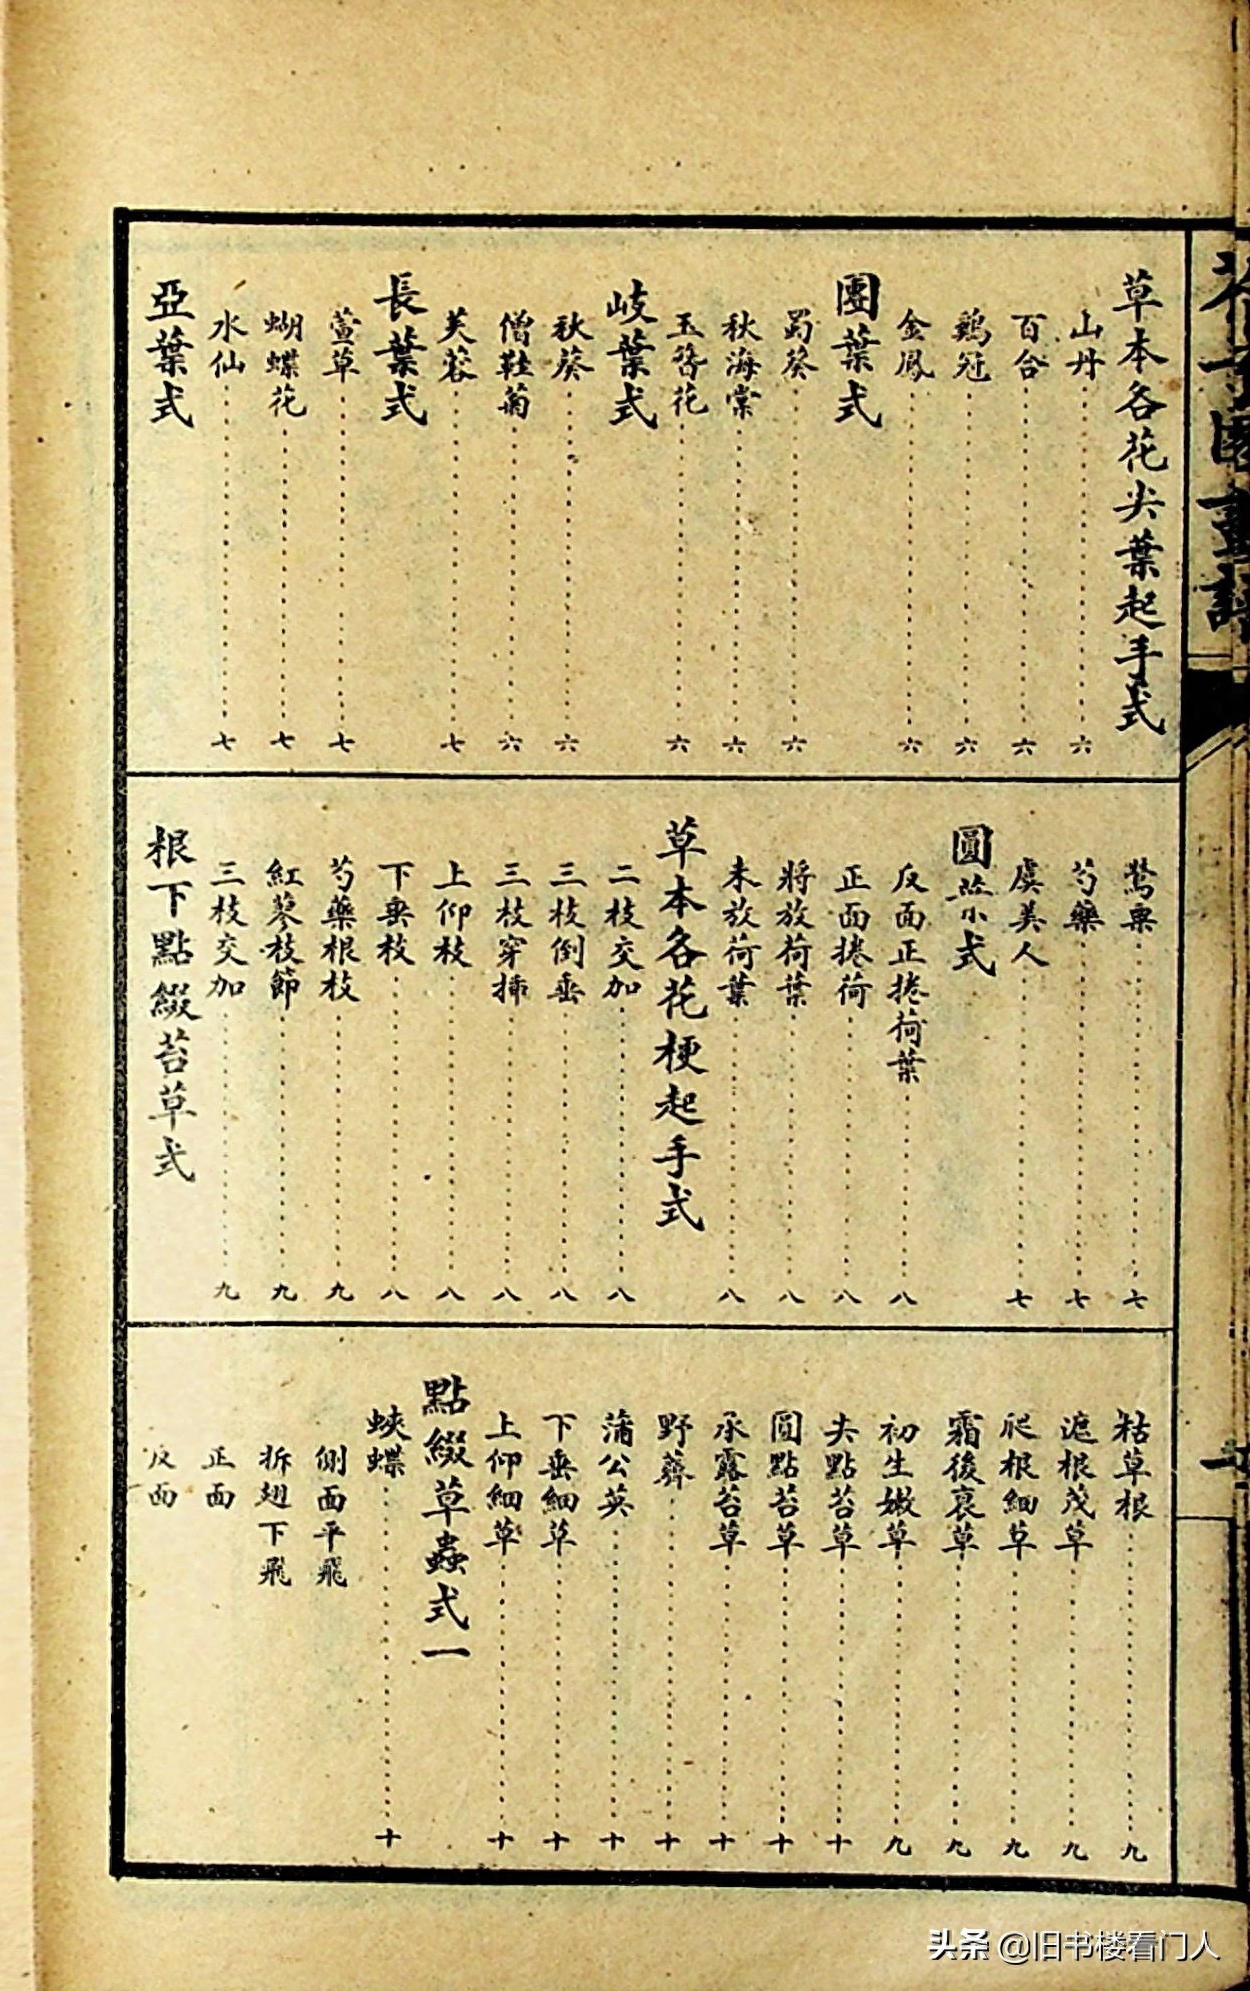 草本各花尖葉起手式
山丹 六
百合 六
鷄冠 六
金鳳 六
團葉式
蜀葵 六
秋海棠 六
玉簪花 六
岐葉式
秋葵 六
僧鞋菊 六
芙蓉 七
長葉式
萱草 七
蝴蝶花 七
水仙 七
亞葉式
鶯粟 七
芍藥 七
虞美人 七
圓葉式
反面正捲荷葉 八
正面捲荷 八
將放荷葉 八
未放荷葉 八
草本各花梗起手式
二枝交加 八
三枝倒垂 八
三枝穿揷 八
上仰枝 八
下垂枝 八
芍藥根枝 九
紅蓼枝節 九
三枝交加 九
根下點綴苔草式
枯草根 九
遮根茂草 九
爬根細草 九
霜後衰草 九
初生嫩草 九
尖點苔草 十
圓點苔草 十
承露苔草 十
野薺 十
蒲公英 十
下垂細草 十
上仰細草 十
點綴草蟲式一
蛺蝶 十
側面平飛
拆翅下飛
正面
反面
頭条 @旧书楼看门人